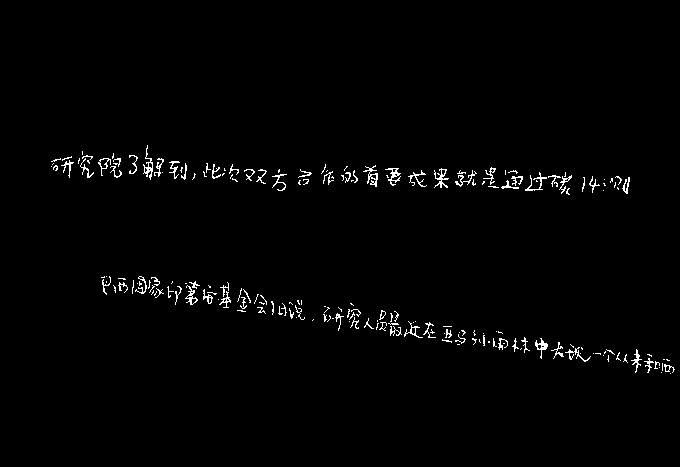 研究院了解到,此次双方合作的首要成果就是通过碳14测
巴西国家印第安基金会1日说,研究人员最近在亚马孙雨林中发现一个从未和西